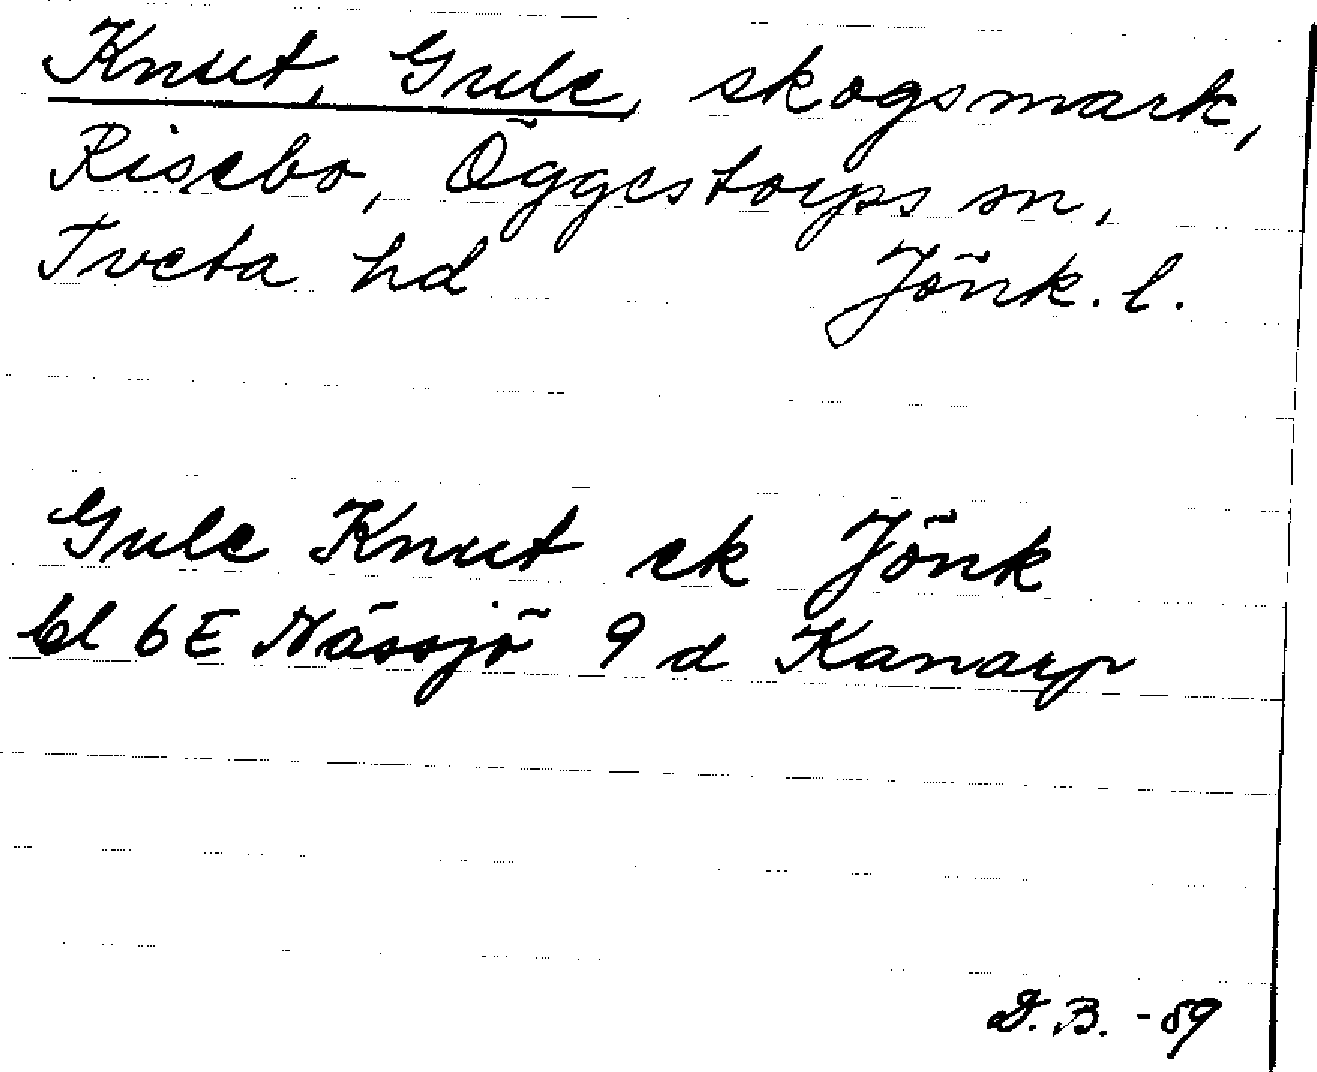 Knut, Gule, skogsmark,
Risebo, Öggestorps sn,
Tveta hd Jönk. l.
Gule Knut ek Jönk
bl 6E Nässjö 9 d Kanarp
D.B. -89